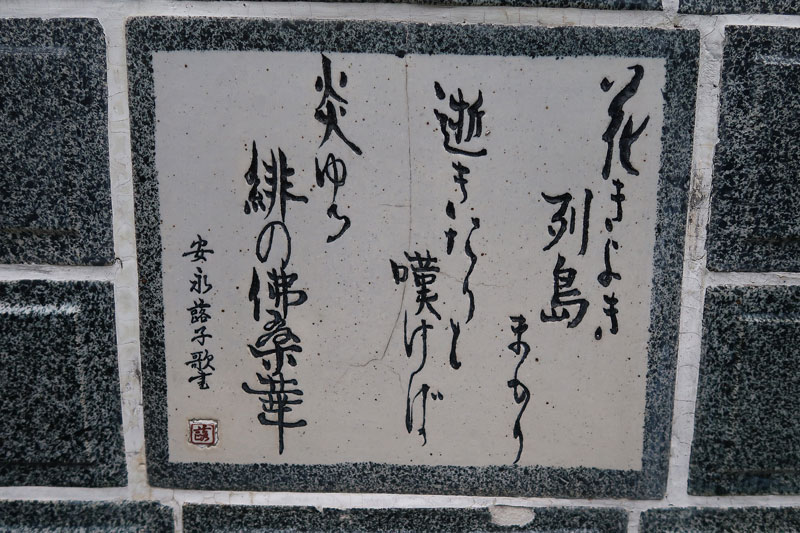 花きよき
列島
まかり
逝きたりと
嘆けば
炎ゆる
緋の佛桑華
安永蕗子歌書
蕗